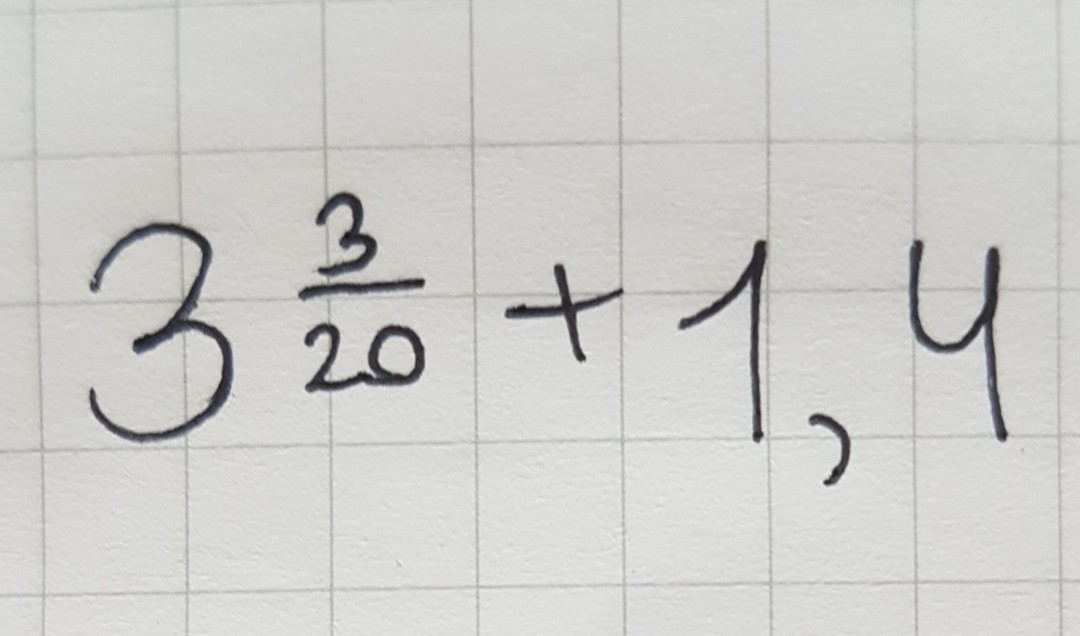 3 3/20 + 1,4